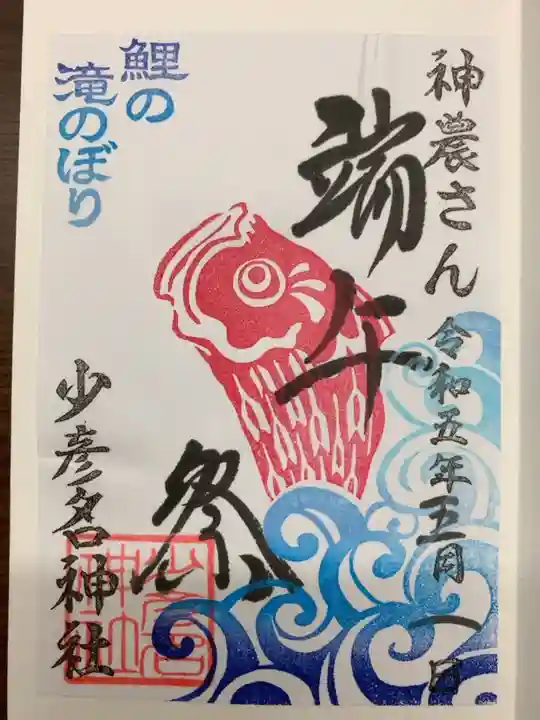 神農さん 令和五年五月一日
端午祭
鯉の
滝のぼり
少彦名神社
少彦名
神社